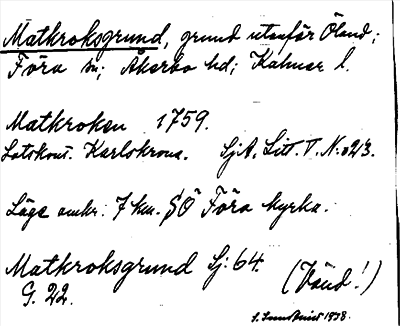 Matkroksgrund, grund utanför Öland;
Föra sn; Åkerbo hd; Kalmar l.
Matkroken 1759.
Lotskont. Karlskrona. SjA. Litt. V. N:o 213.
Läge omkr. 7 km. SÖ Föra kyrka.
Matkroksgrund Sj: 64.
G. 22. (Vänd!)
1938.